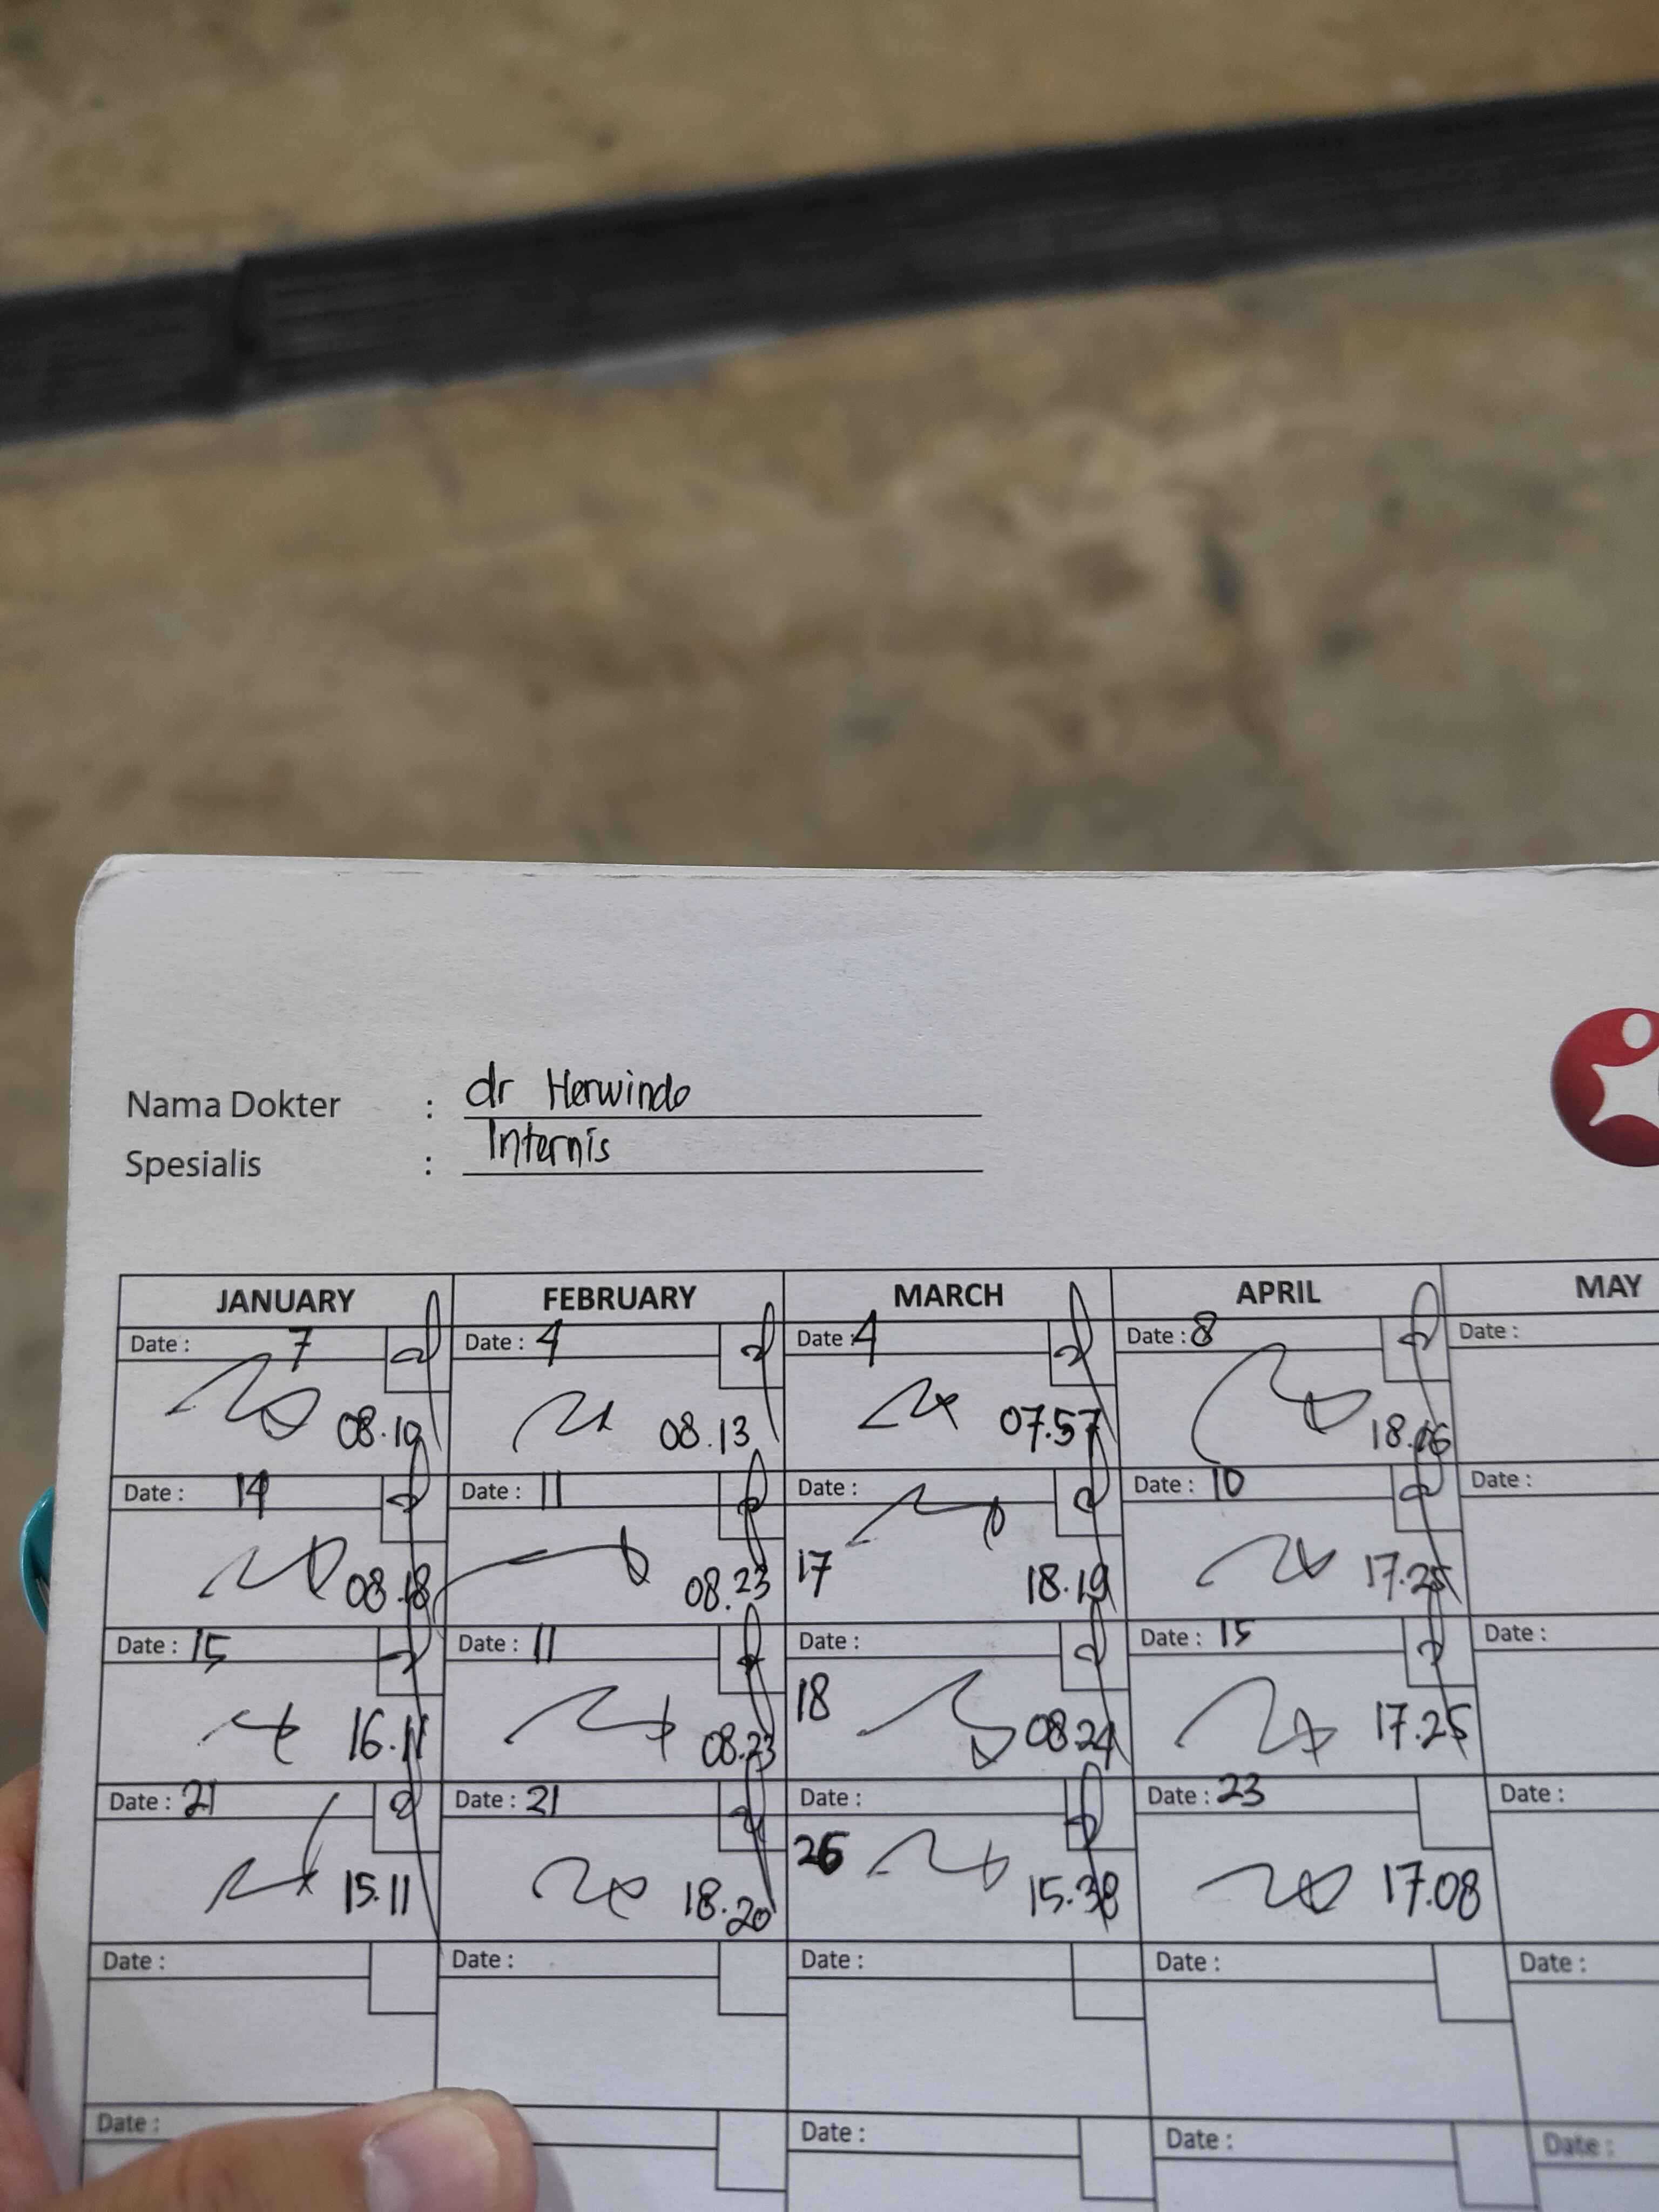 Nama Dokter : dr Herwindo
Spesialis : Internis
JANUARY FEBRUARY MARCH APRIL MAY
Date : 7 Date : 4 Date : 4 Date : 8 Date :
08.19 08.13 07.57 18.06
Date : 14 Date : 11 Date : Date : 10 Date :
08.18 08.23 17 18.19 17.25
Date : 15 Date : 11 Date : Date : 15 Date :
16.11 08.23 18 08.24 17.25
Date : 21 Date : 21 Date : Date : 23 Date :
15.11 18.20 26 15.38 17.08
Date : Date : Date : Date : Date :
Date : Date : Date : Date :